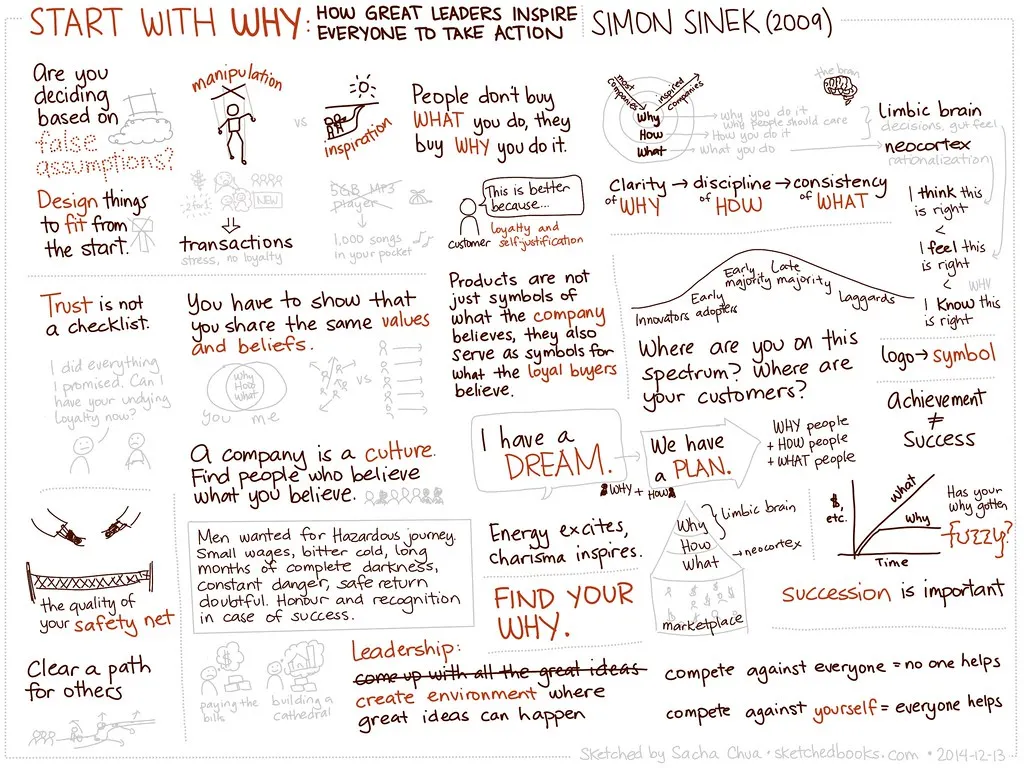 START WITH WHY: HOW GREAT LEADERS INSPIRE
EVERYONE TO TAKE ACTION
SIMON SINEK (2009)
Are you
deciding
based on
false
assumptions?
manipulation
vs
inspiration
People don't buy
WHAT you do, they
buy WHY you do it.
most
companies
inspired
companies
Why
How
What
why you do it
why people should care
How you do it
What you do
the brain
limbic brain
decisions, gut feel
neocortex
rationalization
Design things
to fit from
the start.
NEW
transactions
stress, no loyalty
5GB MP3
player
1,000 songs
in your pocket
This is better
because...
customer
loyalty and
self-justification
clarity → discipline → consistency
of WHY
of HOW
of WHAT
I think this
is right
<
I feel this
is right
<
WHY
I know this
is right
Trust is not
a checklist.
I did everything
I promised. Can I
have your undying
loyalty now?
You have to show that
you share the same values
and beliefs.
Why
How
What
you me
vs
Products are not
just symbols of
what the company
believes, they also
serve as symbols for
what the loyal buyers
believe.
Innovators
Early
adopters
Early
majority
Late
majority
Laggards
Where are you on this
spectrum? Where are
your customers?
logo → symbol
Achievement
≠
Success
A company is a culture.
Find people who believe
what you believe.
I have a
DREAM.
We have
a PLAN.
WHY + HOW
WHY people
+ HOW people
+ WHAT people
the quality of
your safety net
Men wanted for Hazardous journey.
Small wages, bitter cold, long
months of complete darkness,
constant danger, safe return
doubtful. Honour and recognition
in case of success.
Energy excites,
charisma inspires.
FIND YOUR
WHY.
Why
How
What
Limbic brain
→ neocortex
marketplace
$,
etc.
What
Why
Time
Has your
why gotten
fuzzy?
succession is important
Clear a path
for others
paying the
bills
building a
cathedral
Leadership:
come up with all the great ideas
create environment where
great ideas can happen
compete against everyone = no one helps
compete against yourself = everyone helps
Sketched by Sacha Chua · sketchedbooks.com · 2014-12-13